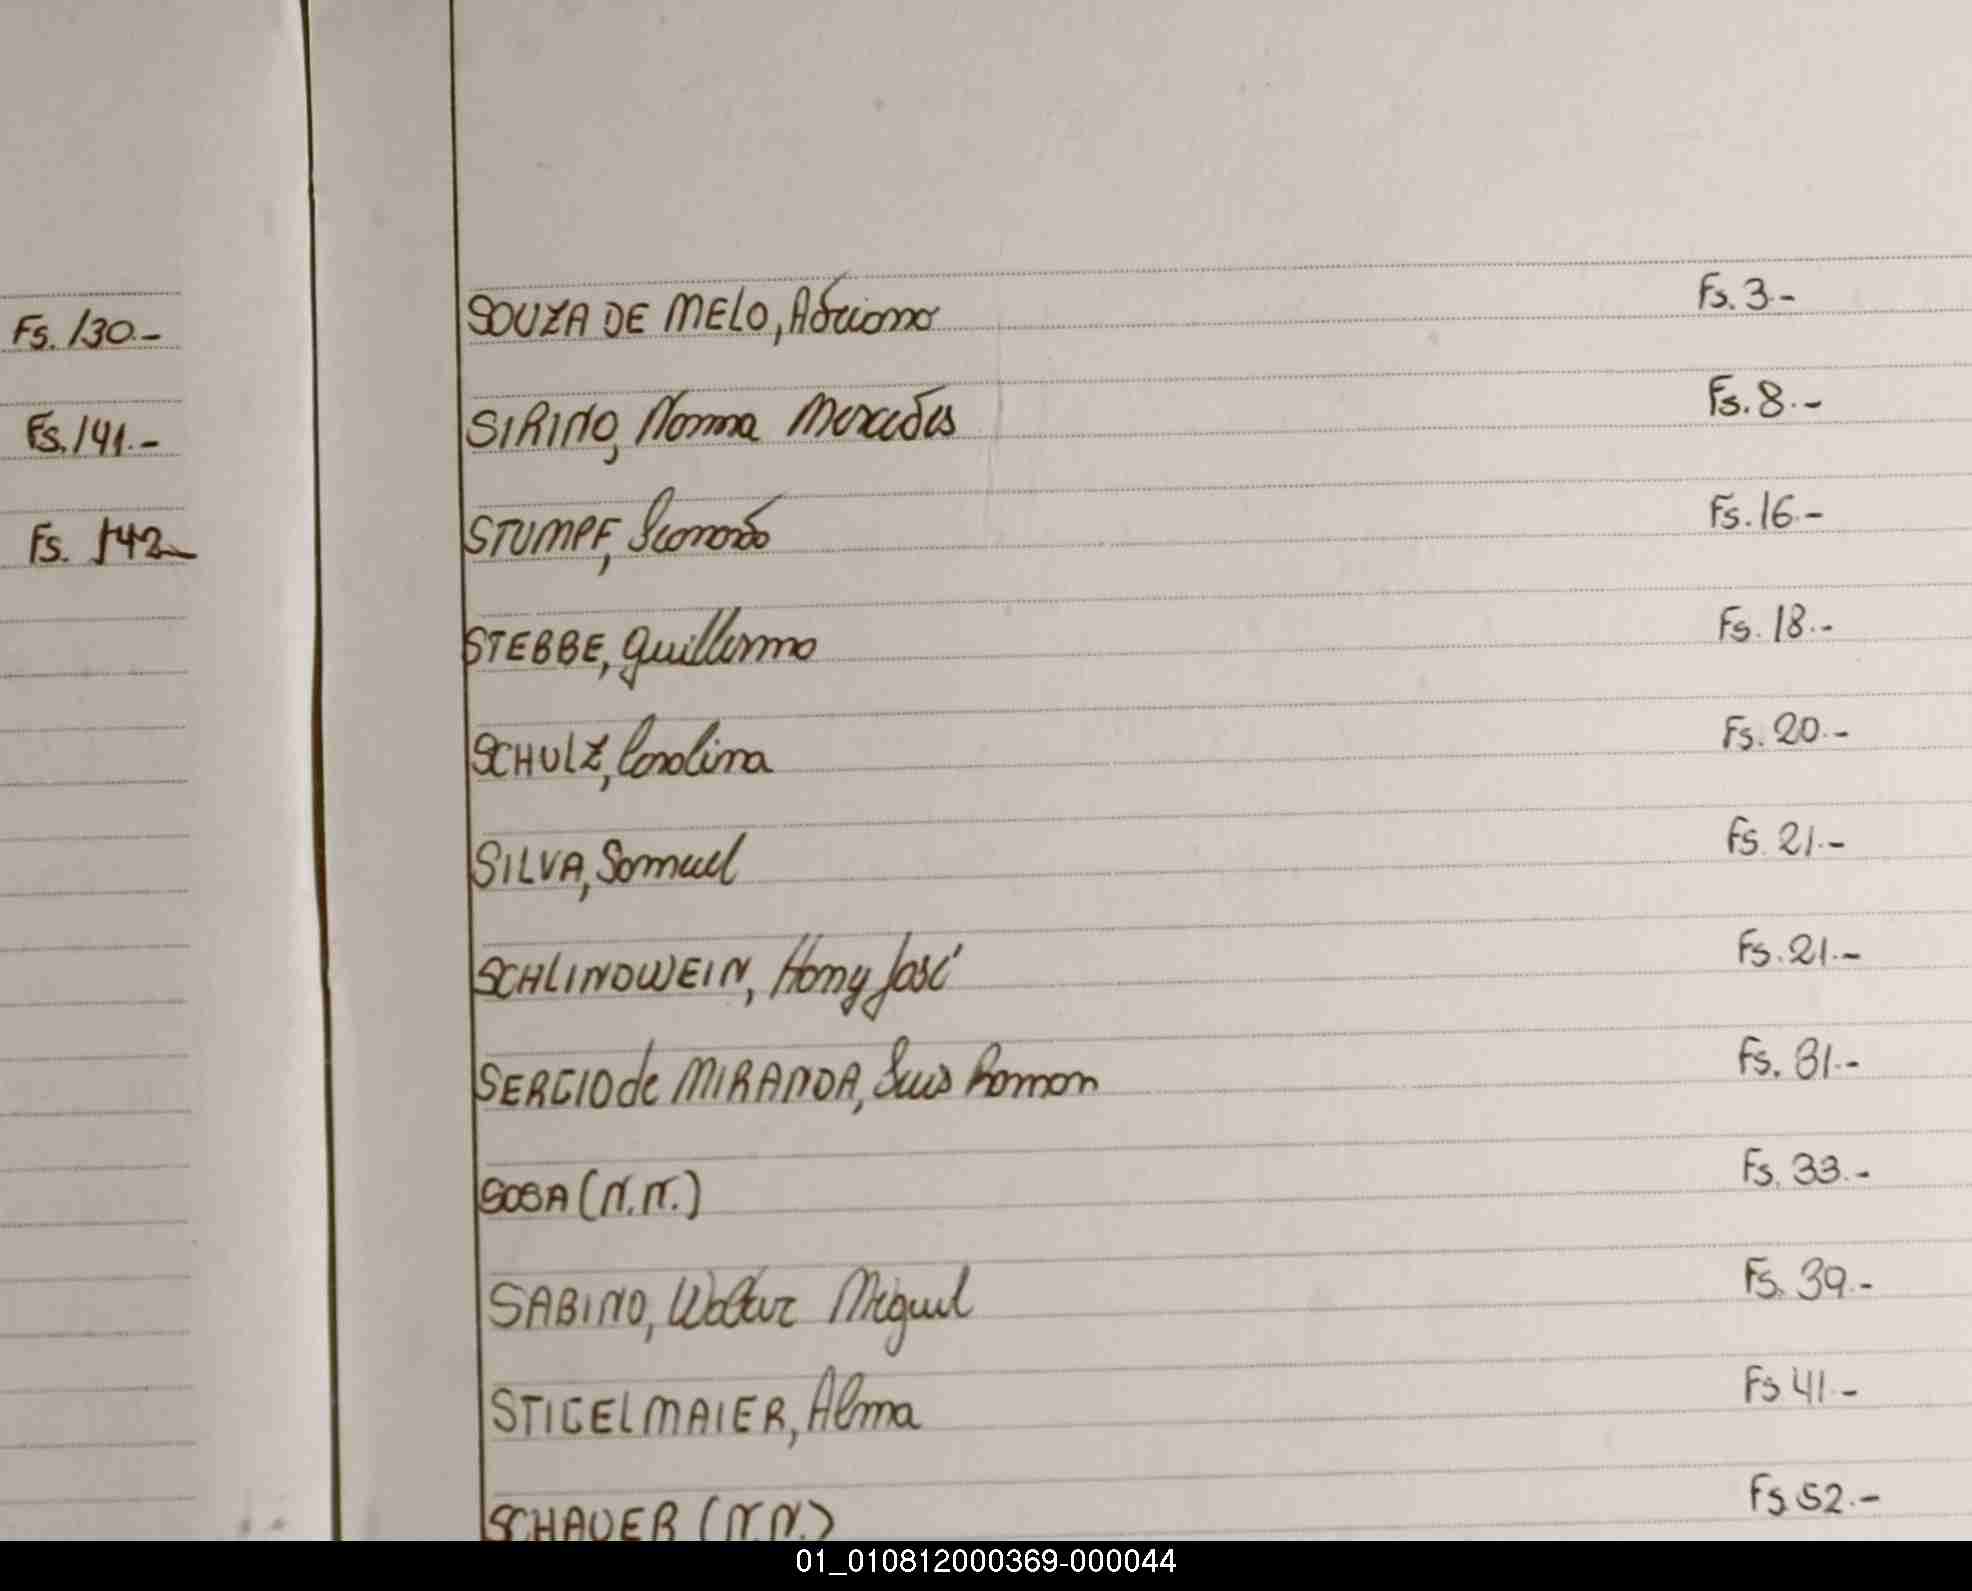 Fs. 130.-
Fs. 141.-
Fs. 142
SOUZA DE MELO, Adriano Fs. 3.-
SIRINO, Norma Mercedes Fs. 8.-
STUMPF, Leonardo Fs. 16.-
STEBBE, Guillermo Fs. 18.-
SCHULZ, Carolina Fs. 20.-
SILVA, Samuel Fs. 21.-
SCHLINDWEIN, Hany José Fs. 21.-
SERGIO de MIRANDA, Luis Ramon Fs. 31.-
SOSA (N.N.) Fs. 33.-
SABINO, Walter Miguel Fs. 39.-
STIGELMAIER, Alma Fs 41.-
SCHAUER (N.N.) Fs 52.-
01_010812000369-000044